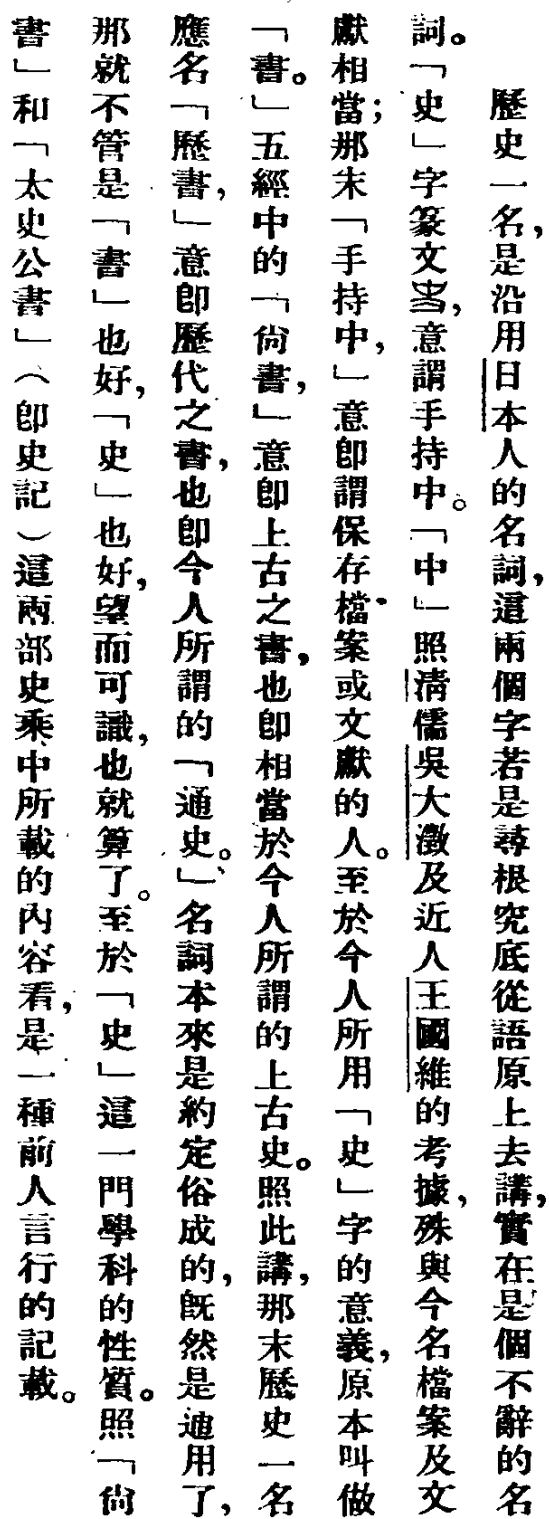 歷史一名，是沿用日本人的名詞，這兩個字若是尋根究底從語原上去講，實在是個不辭的名
詞。「史」字篆文㕜，意謂手持中。「中」照淸儒吳大澂及近人王國維的考據，殊與今名檔案及文
獻相當；那末「手持中，」意卽謂保存檔案或文獻的人。至於今人所用「史」字的意義，原本叫做
「書。」五經中的「尙書，」意卽上古之書，也卽相當於今人所謂的上古史。照此講，那末歷史一名
應名「歷書，」意卽歷代之書，也卽今人所謂的「通史。」名詞本來是約定俗成的，旣然是通用了，
那就不管是「書」也好，「史」也好，望而可識，也就算了。至於「史」這一門學科的性質。照「尙
書」和「太史公書」（卽史記）這兩部史乘中所載的內容看，是一種前人言行的記載。